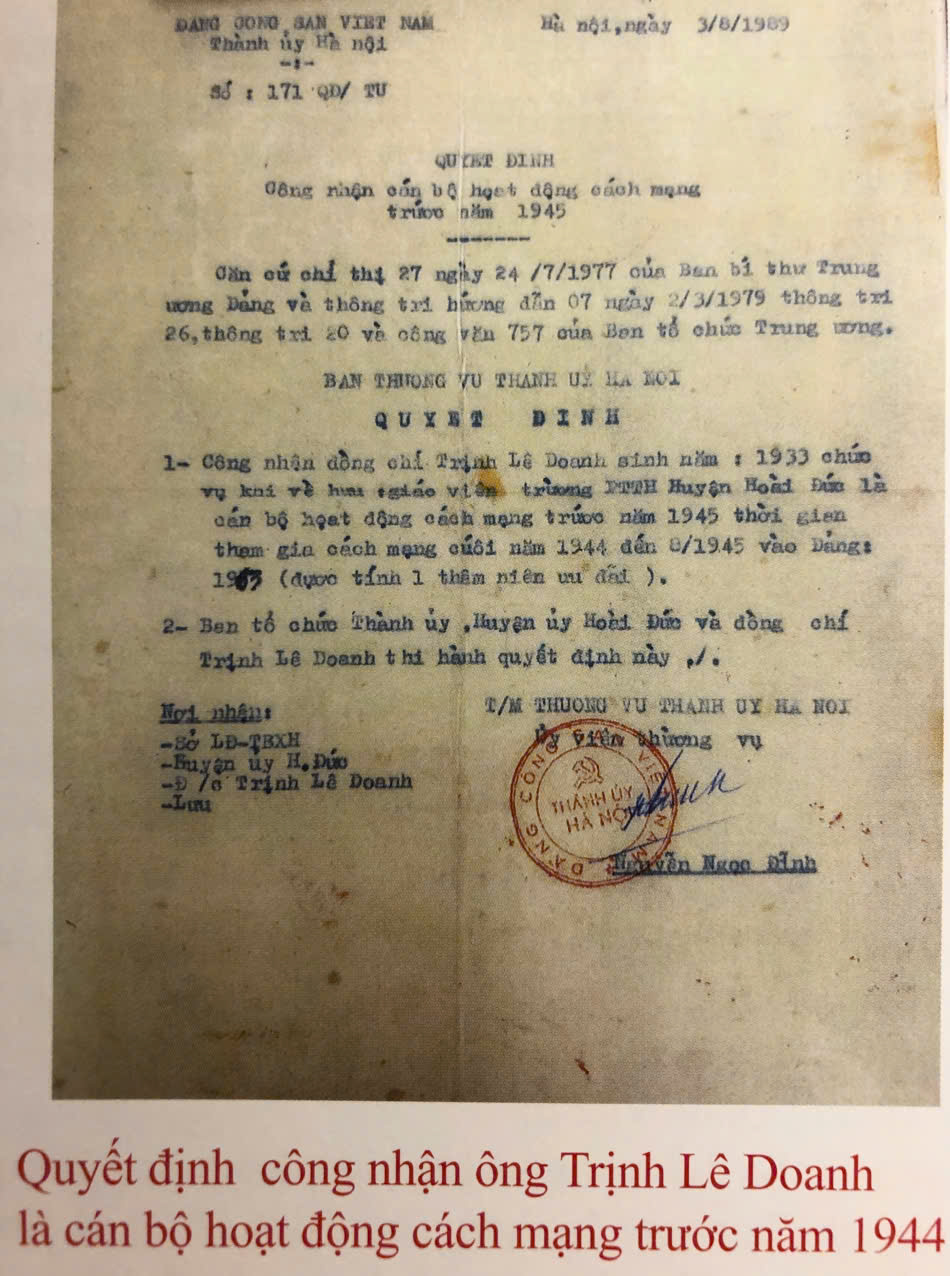 ĐANG CONG SAN VIET NAM
Thành ủy Hà nội
-:-
Số : 171 QD/ TU
Hà nội,ngày 3/8/1989
QUYET DINH
Công nhận cán bộ hoạt động cách mạng
trước năm 1945
Căn cứ chỉ thị 27 ngày 24 /7/1977 của Ban bí thư Trung
ương Đảng và thông tri hướng dẫn 07 ngày 2/3/1979 thông tri
26,thông tri 20 và công văn 757 của Ban tổ chức Trung ương.
BAN THUONG VU THANH UY HA NOI
QUYET DINH
1- Công nhận đồng chí Trịnh Lê Doanh sinh năm : 1933 chức
vụ khi về hưu :giáo viên trường PTTH Huyện Hoài Đức là
cán bộ hoạt động cách mạng trước năm 1945 thời gian
tham gia cách mạng cuối năm 1944 đến 8/1945 vào Đảng:
(được tính 1 thâm niên ưu đãi ).
2- Ban tổ chức Thành ủy ,Huyện ủy Hoài Đức và đồng chí
Trịnh Lê Doanh thi hành quyết định này ./.
Nơi nhận:
-Sở LĐ-TBXH
-Huyện ủy H.Đức
-Đ /c Trịnh Lê Doanh
-Lưu
T/M THUONG VU THANH UY HA NOI
Ủy viên thường vụ
ĐẢNG CỘNG SẢN VIỆT NAM
THÀNH ỦY
HÀ NỘI
Nguyễn Ngọc Đỉnh
Quyết định công nhận ông Trịnh Lê Doanh
là cán bộ hoạt động cách mạng trước năm 1944